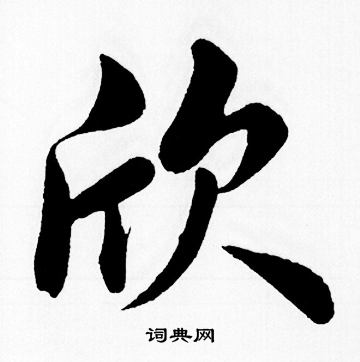 欣
词典网